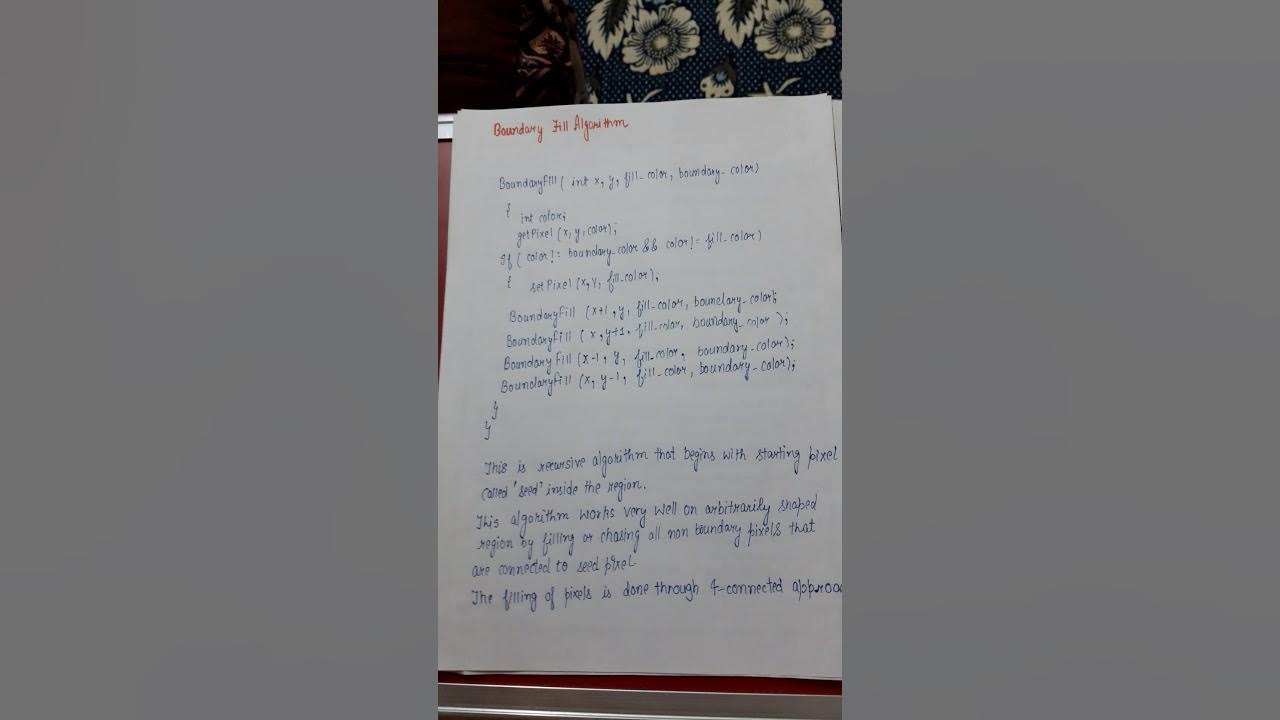 Boundary Fill Algorithm
BoundaryFill ( int x, y, fill_color, boundary_color)
{
int color;
getPixel (x, y, color);
If ( color != boundary_color && color != fill_color)
{ setPixel (x, y, fill_color);
BoundaryFill (x+1, y, fill_color, boundary_color);
BoundaryFill ( x, y+1, fill_color, boundary_color );
BoundaryFill (x-1, y, fill_color, boundary_color);
BoundaryFill (x, y-1, fill_color, boundary_color);
}
}
This is recursive algorithm that begins with starting pixel
called "seed" inside the region.
This algorithm works very well on arbitrarily shaped
region by filling or chasing all non boundary pixels that
are connected to seed pixel.
The filling of pixels is done through 4-connected approac